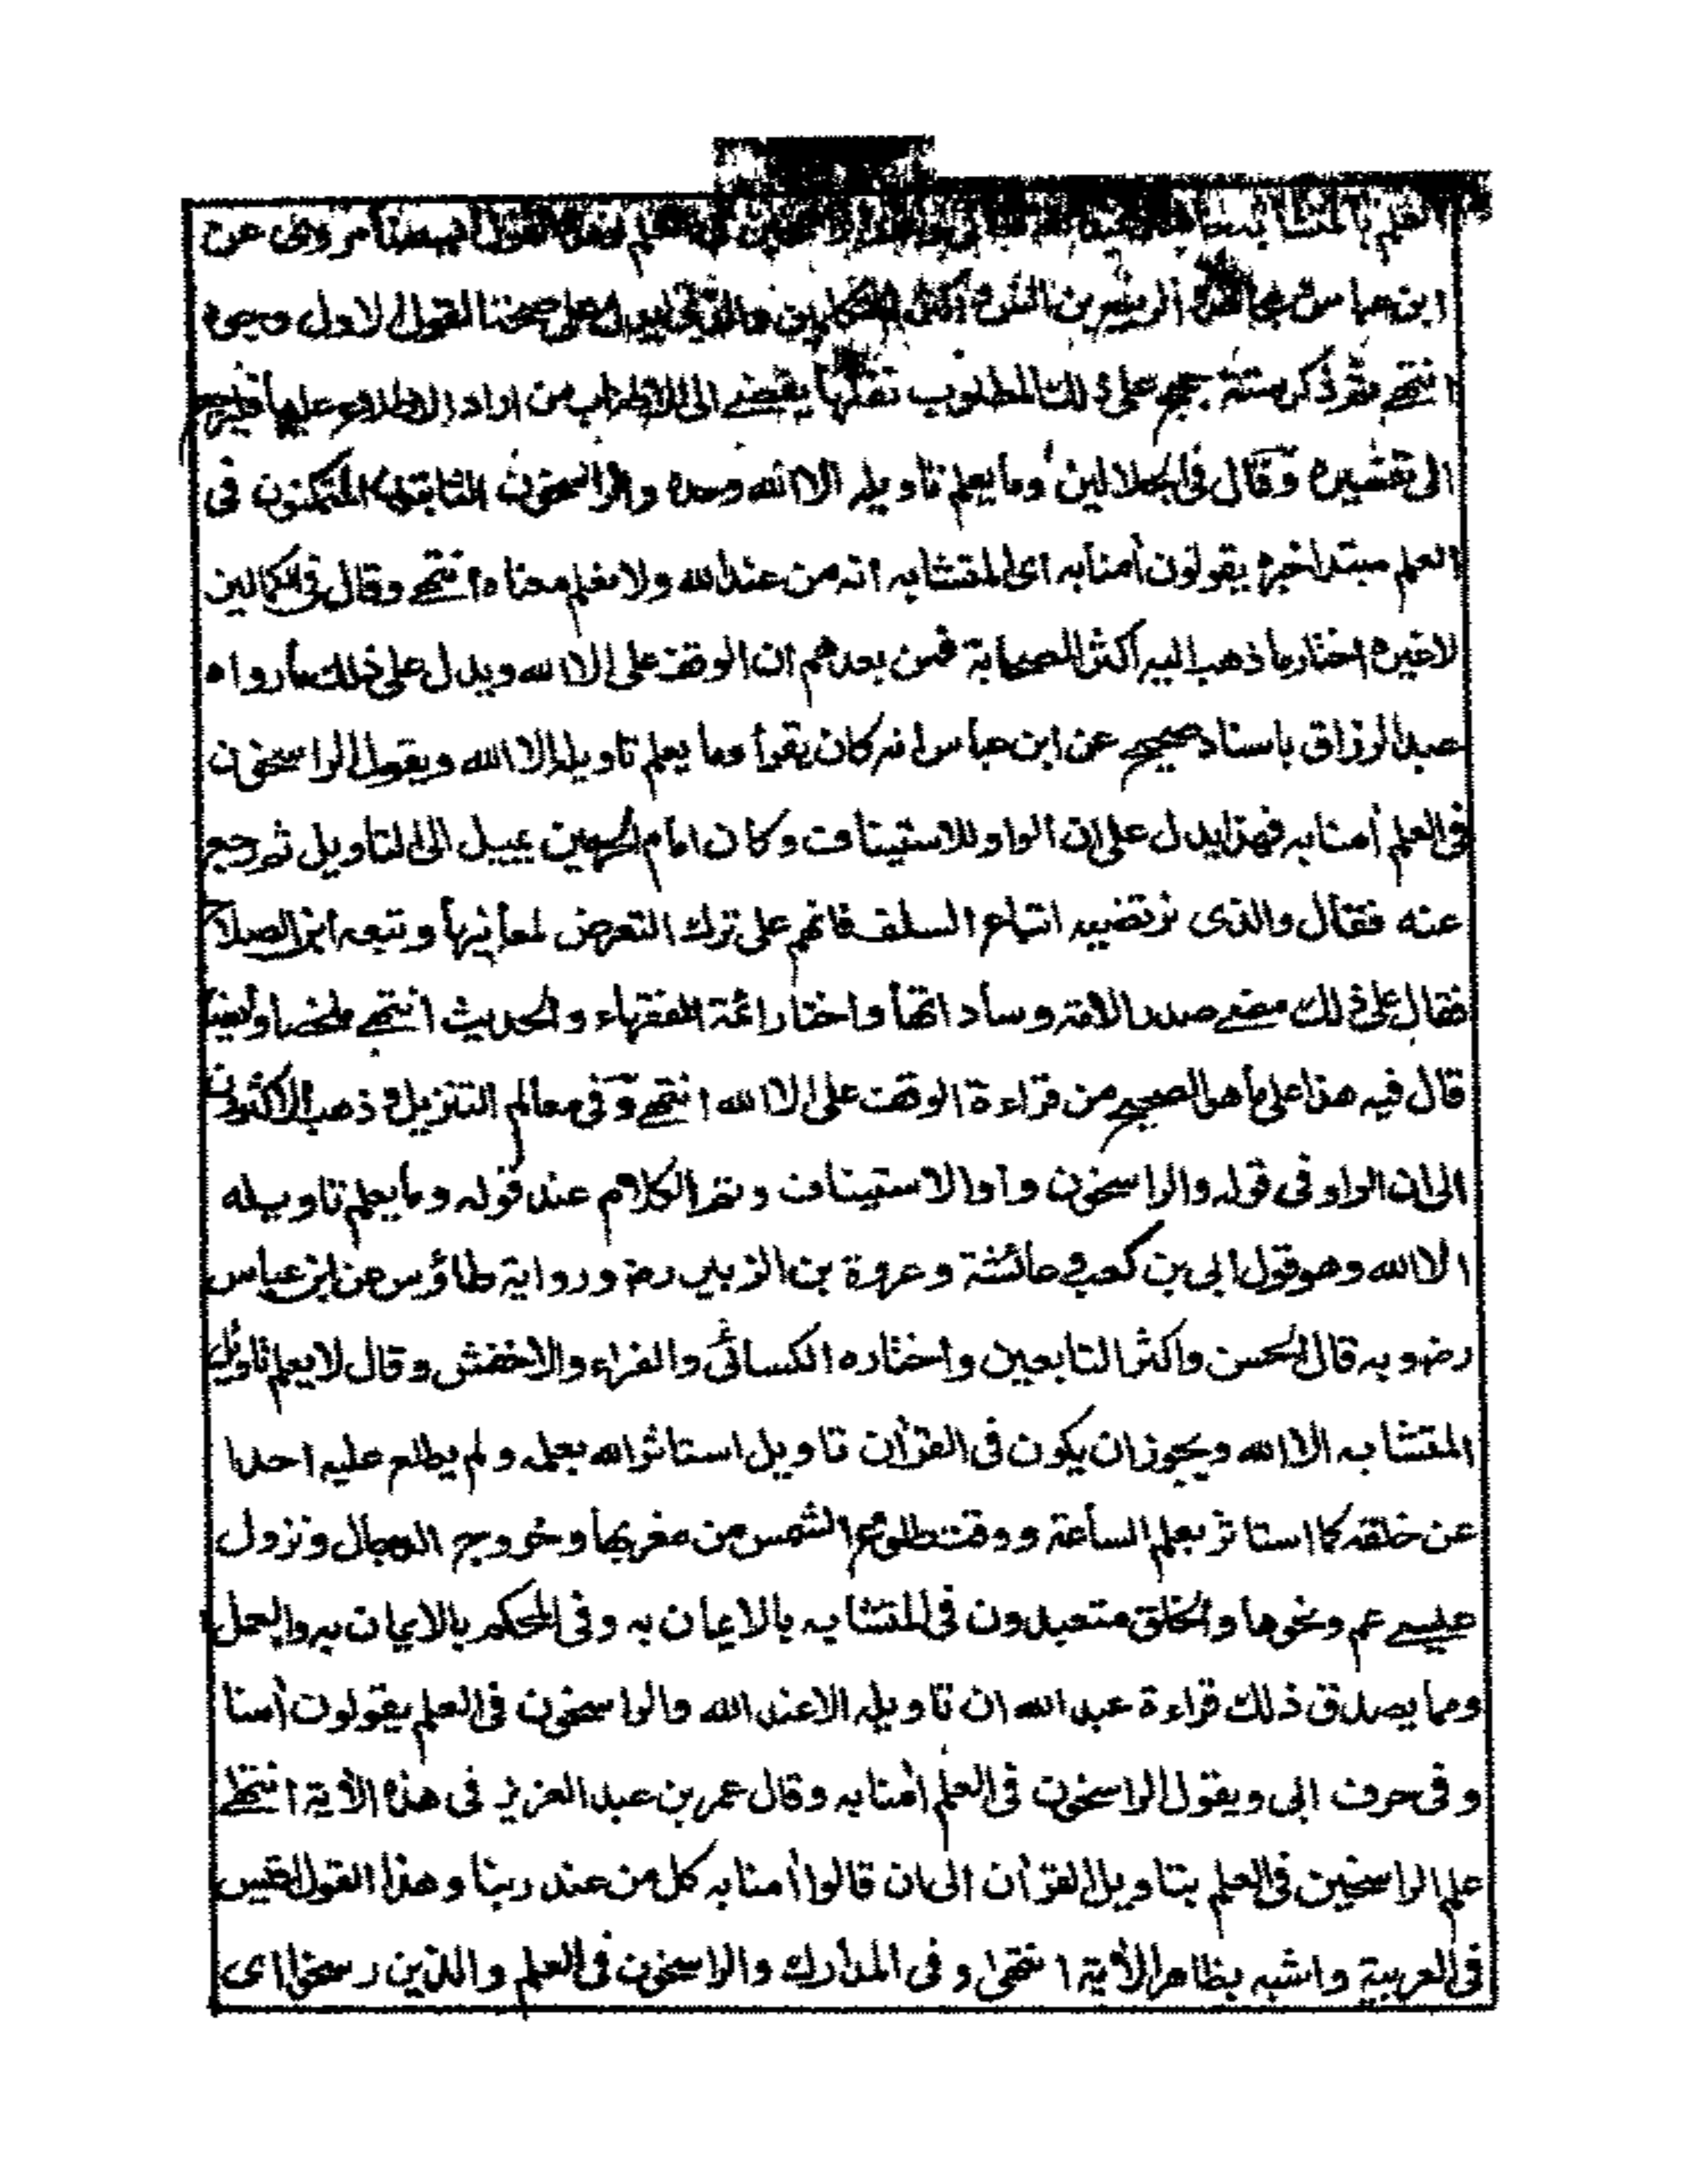 العلم بالمتشابه القول ايضا مروى عن
ابن عباس الربيع بن انس واكثر المتكلمين يدل على صحة القول الاول وجوه
انتهى ثم ذكر ستة حجج على ذلك المطلوب نقلها يفضے الى الاطناب من اراد الاطلاع عليها فليرجع
الى تفسيره وقال فى الجلالين وما يعلم تاويله الا الله وحده والراسخون الثابتون المتمكنون فى
العلم مبتدا خبره يقولون اٰمنا به اى المتشابه انه من عند الله ولا نعلم معناه انتهے وقال فى الكمالين
لا غيره اختار ما ذهب اليه اكثر الصحابة فمن بعدهم ان الوقف على الا الله ويدل على ذلك ما رواه
عبد الرزاق باسناد صحيح عن ابن عباس انه كان يقرأ وما يعلم تاويله الا الله ويقول الراسخون
فى العلم اٰمنا به فهذا يدل على ان الواو للاستيناف وكان امام الحرمين يميل الى التاويل ثم رجع
عنه فقال والذى نرتضيه اتباع السلف فانهم على ترك التعرض لمعانيها وتبعه ابن الصلاح
فقال على ذلك مضے صدر الامة وساداتها واختار ائمة الفقهاء والحديث انتهے ملخصا وايضا
قال فيه هذا على ما هو الصحيح من قراءة الوقف على الا الله انتهے وفى معالم التنزيل وذهب الاكثرون
الى ان الواو فى قوله والراسخون واو الاستيناف وتم الكلام عند قوله وما يعلم تاويله
الا الله وهو قول ابى بن كعب وعائشة وعروة بن الزبير رض ورواية طاؤس عن ابن عباس
رض وبه قال الحسن واكثر التابعين واختاره الكسائى والفراء والاخفش وقال لا يعلم تاويل
المتشابه الا الله ويجوز ان يكون فى القراٰن تاويل استاثر الله بعلمه ولم يطلع عليه احدا
عن خلقه كما استاثر بعلم الساعة ووقت طلوع الشمس من مغربها وخروج الدجال ونزول
عيسے عم ونحوها والخلق متعبدون فى المتشابه بالايمان به وفى المحكم بالايمان به والعمل
ومما يصدق ذلك قراءة عبد الله ان تاويله الا عند الله والراسخون فى العلم يقولون اٰمنا
وفى حرف ابى ويقول الراسخون فى العلم اٰمنا به وقال عمر بن عبد العزيز فى هذه الاٰية انتهے
علم الراسخين فى العلم بتاويل القراٰن الى ان قالوا اٰمنا به كل من عند ربنا وهذا القول اقيس
فى العربية واشبه بظاهر الاٰية انتهى وفى المدارك والراسخون فى العلم والذين رسخوا اى